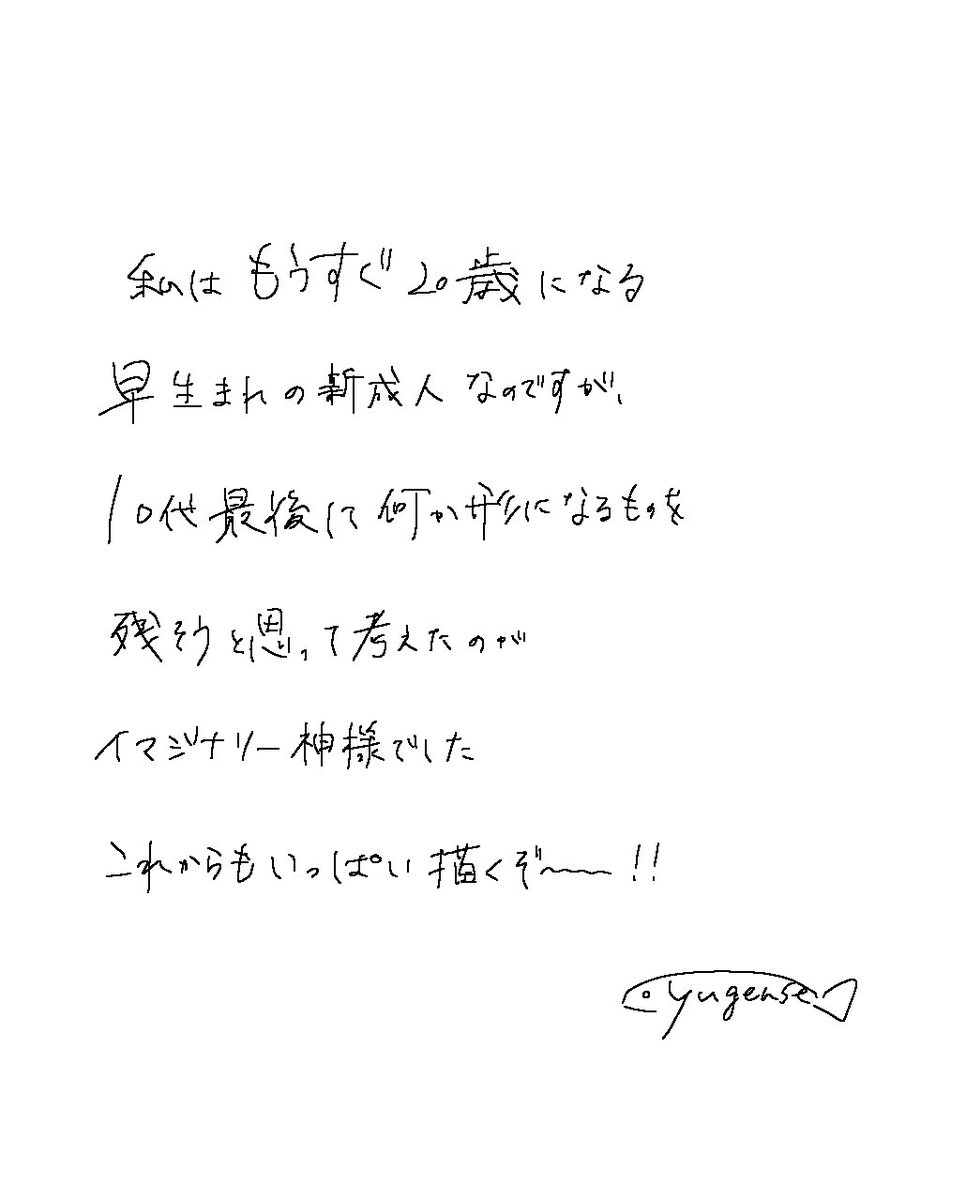 私はもうすぐ20歳になる
早生まれの新成人なのですが、
10代最後に何か形になるものを
残そうと思って考えたのが
イマジナリー神様でした
これからもいっぱい描くぞ〜〜!!
yugense